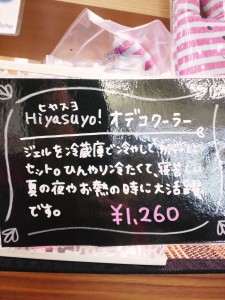 ヒヤスヨ
Hiyasuyo! オデコクーラー
ジェルを冷蔵庫で冷やして
セット。ひんやり冷たくて、寝苦しい
夏の夜やお熱の時に大活躍
です。 ¥1,260